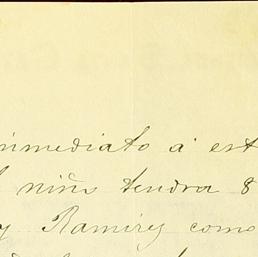 inmediato á est
niño tendra 8
y Ramirez como